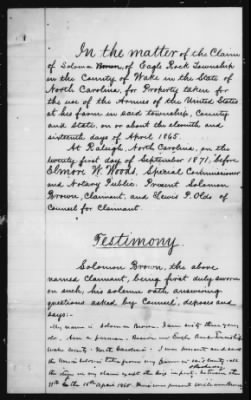 In the matter of the Claim
of Solomon Brown, of Eagle Rock Township
in the County of Wake in the State of
North Carolina, for Property taken for
the use of the Armies of the United States
at his farm in said township, County
and State, on or about the eleventh and
sixteenth days of April 1865.
At Raleigh, North Carolina, on the
twenty first day of September 1871, before
Elmore W. Woods, Special Commissioner
and Notary Public. Present Solomon
Brown, Claimant, and Lewis P. Olds of
Counsel for Claimant.
Testimony.
Solomon Brown, the above
named claimant, being first duly sworn
on such, his solemn oath answering
questions asked by Counsel, deposes and
says:-
My name is Solomon Brown. I am sixty three years
old. Am a farmer. Reside in Eagle Rock township
Wake County North Carolina. I was present and saw
taken from my farm in said County all
the in my claim except the
11th to the 16th April 1865. present William Brown